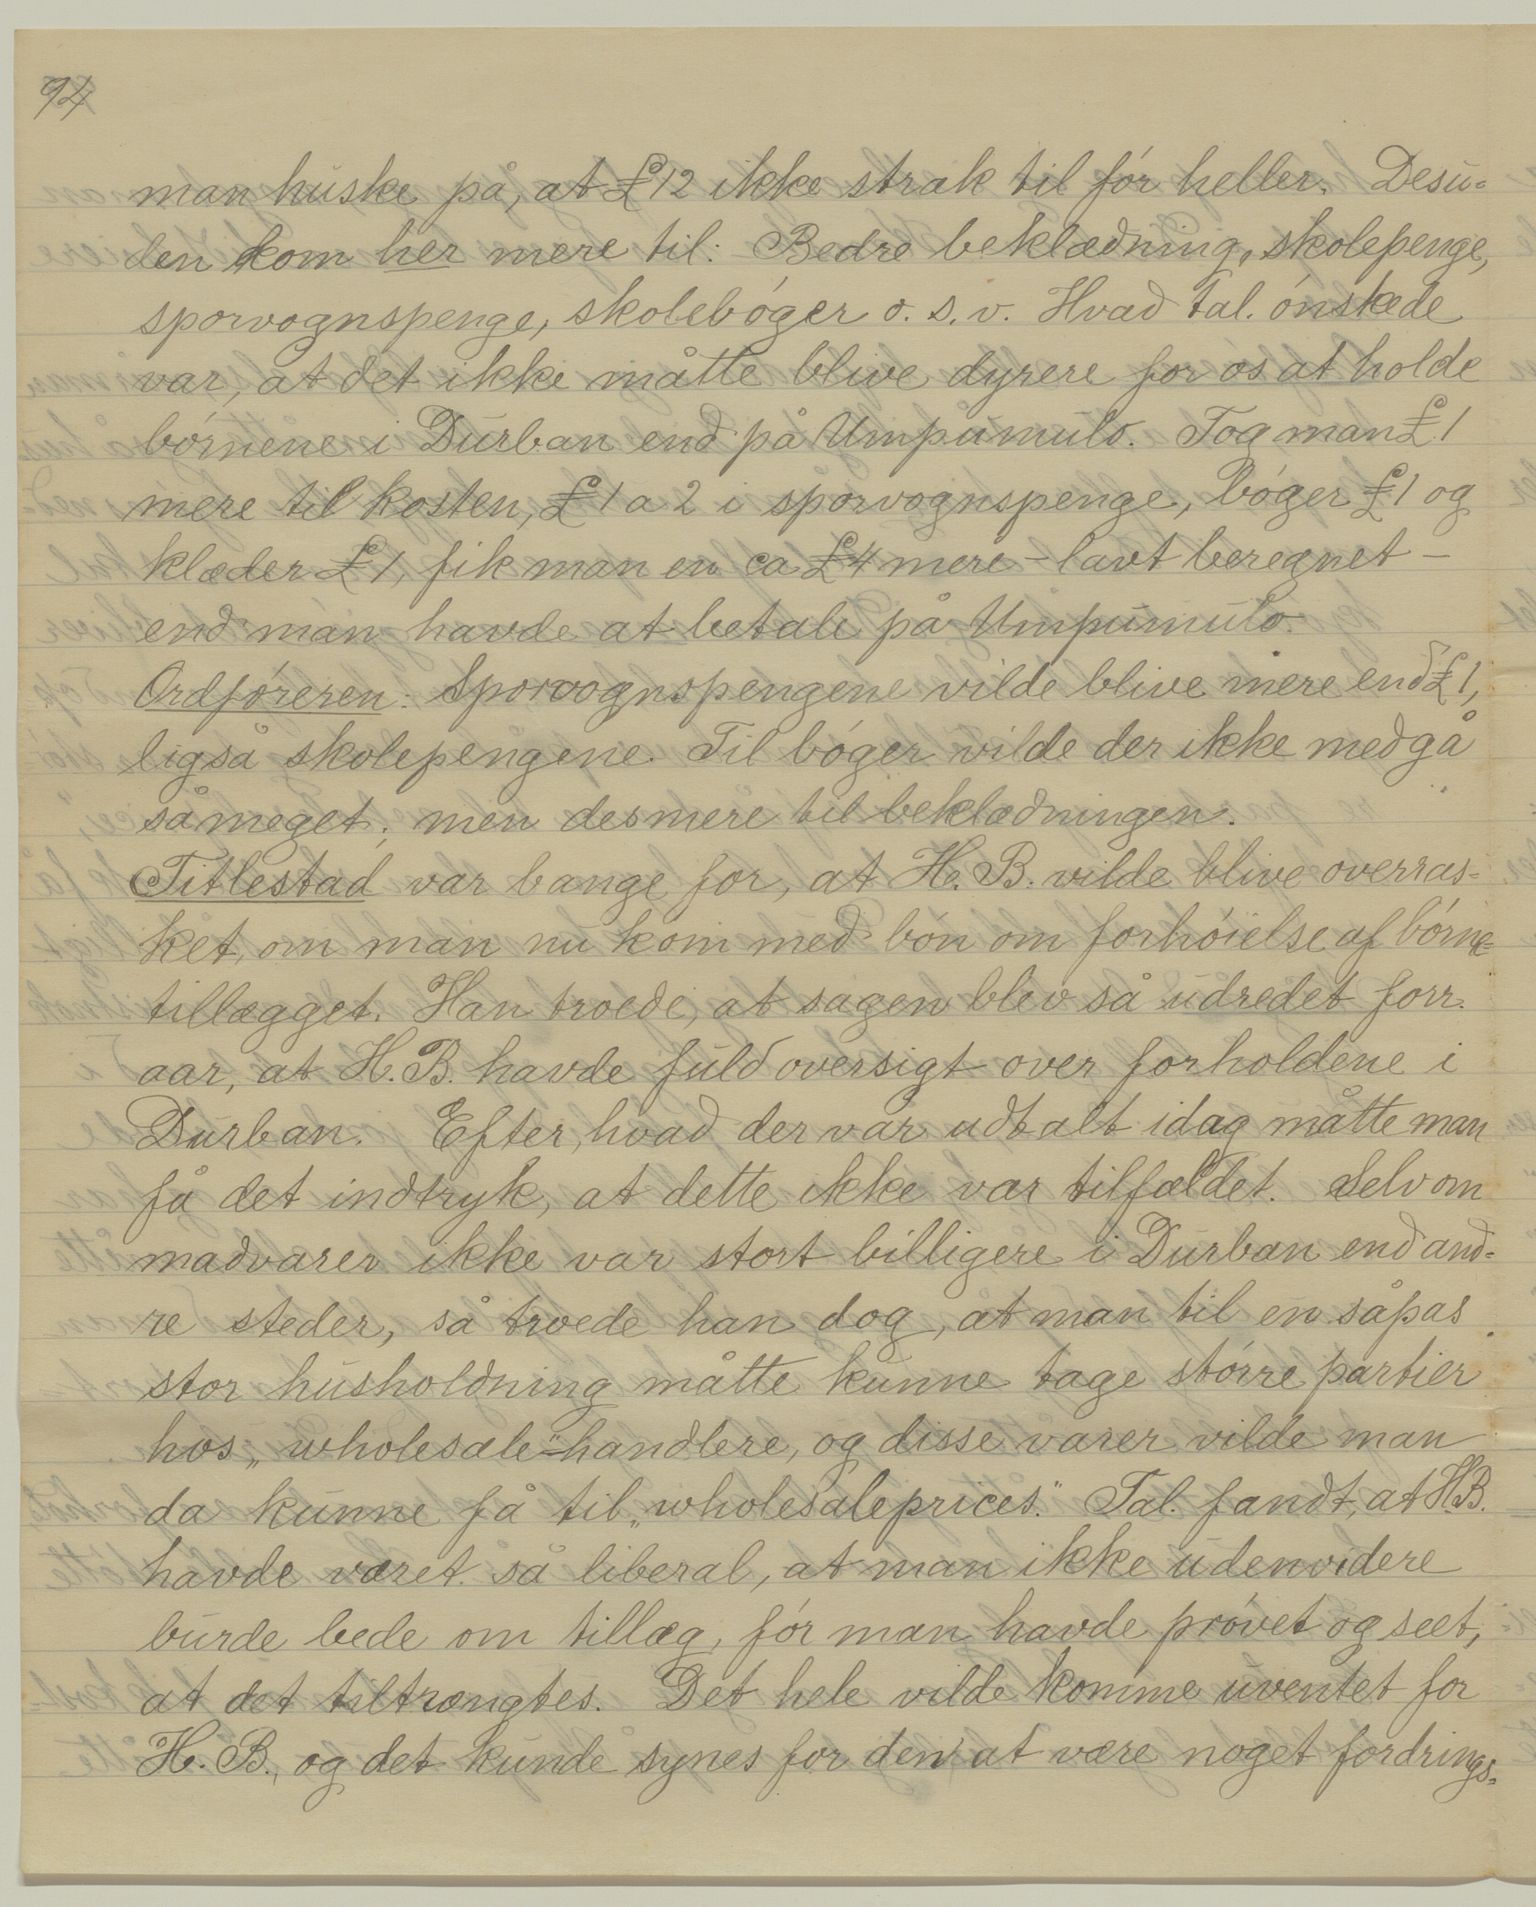 94
man huske på, at £12 ikke strak til før heller. Desu-
den kom her mere til: Bedre beklædning, skolepenge,
sporvognspenge, skolebøger o. s. v. Hvad tal. ønskede
var, at det ikke måtte blive dyrere for os at holde
børnene i Durban end på Umpumulo. Tog man £1
mere til kosten, £1 a 2 i sporvognspenge, bøger £1 og
klæder £1, fik man en ca £4 mere – lavt beregnet –
end man havde at betale på Umpumulo.
Ordføreren: Sporvognspengene vilde blive mere end £1,
ligså skolepengene. Til bøger vilde der ikke medgå
så meget; men desmere til beklædningen.
Titlestad var bange for, at H. B. vilde blive overras-
ket, om man nu kom med bøn om forhøielse af børne-
tillægget. Han troede, at sagen blev så udredet forr.
aar, at H. B. havde fuld oversigt over forholdene i
Durban. Efter, hvad der var udtalt idag måtte man
få det indtryk, at dette ikke var tilfældet. Selv om
madvarer ikke var stort billigere i Durban end and-
re steder, så troede han dog, at man til en såpas
stor husholdning måtte kunne tage større partier
hos „wholesale"-handlere, og disse varer vilde man
da kunne få til „wholesaleprices". Tal. fandt, at H.B.
havde været så liberal, at man ikke udenvidere
burde bede om tillæg, før man havde prøvet og seet,
at det tiltrængtes. Det hele vilde komme uventet for
H. B., og det kunde synes for den at være noget fordrings-